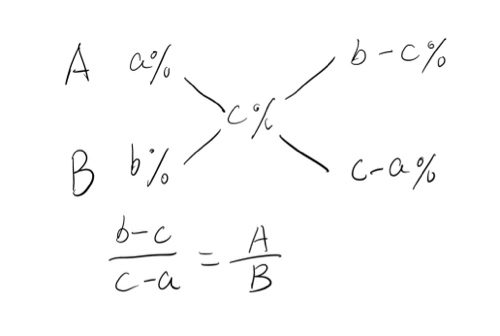 A a% b-c%
c%
B b% c-a%
b-c
c-a = A
B